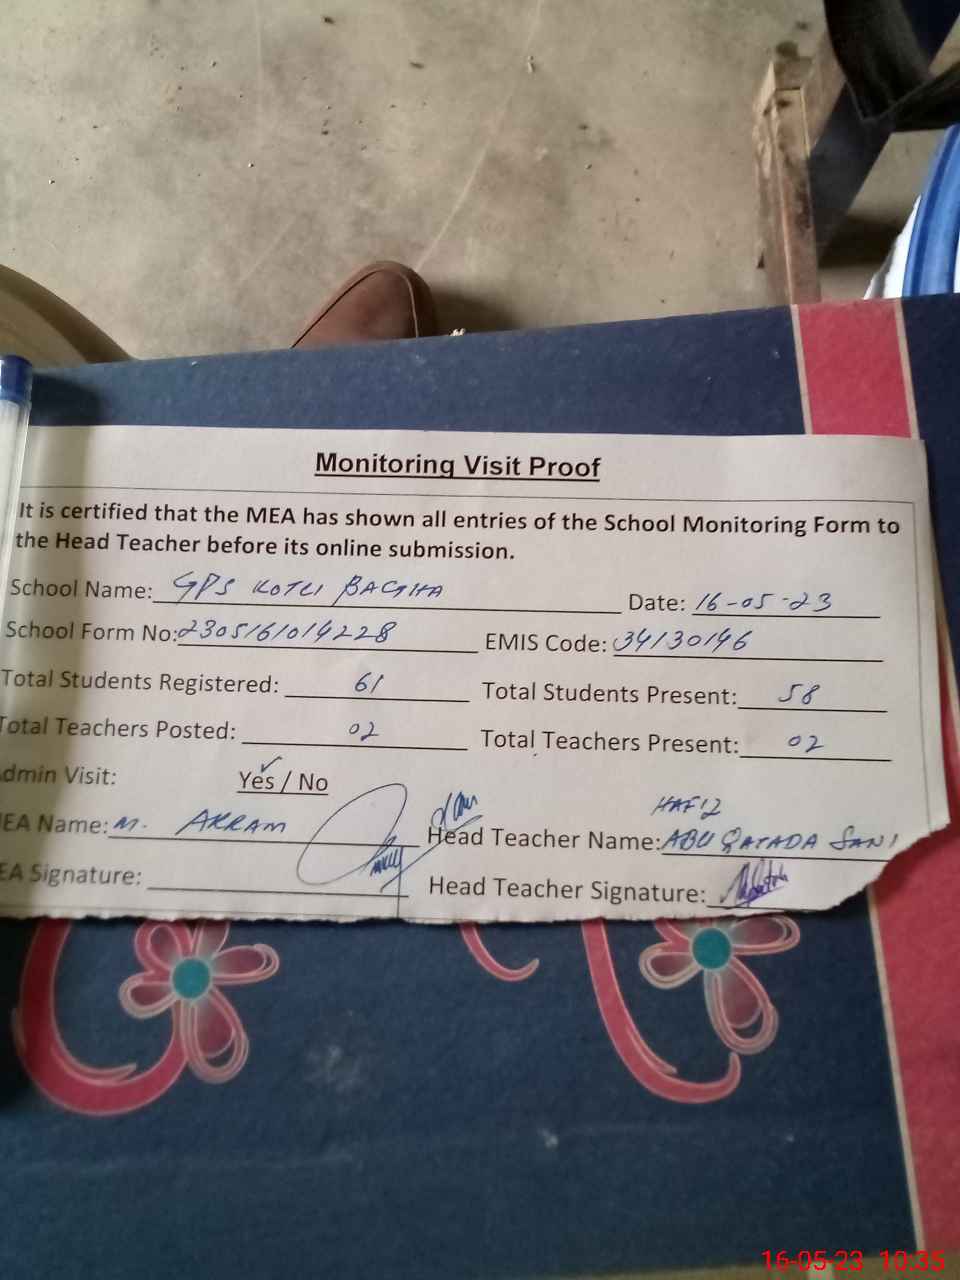 Monitoring Visit Proof
It is certified that the MEA has shown all entries of the School Monitoring Form to
the Head Teacher before its online submission.
School Name: GPS KOTLI BAGHA Date: 16-05-23
School Form No: 2305161014228 EMIS Code: 34130146
Total Students Registered: 61 Total Students Present: 58
Total Teachers Posted: 02 Total Teachers Present: 02
dmin Visit: Yes / No
HAFIZ
EA Name: M. AKRAM Head Teacher Name: ABU QATADA SANI
EA Signature: Head Teacher Signature:
16-05-23 10:35